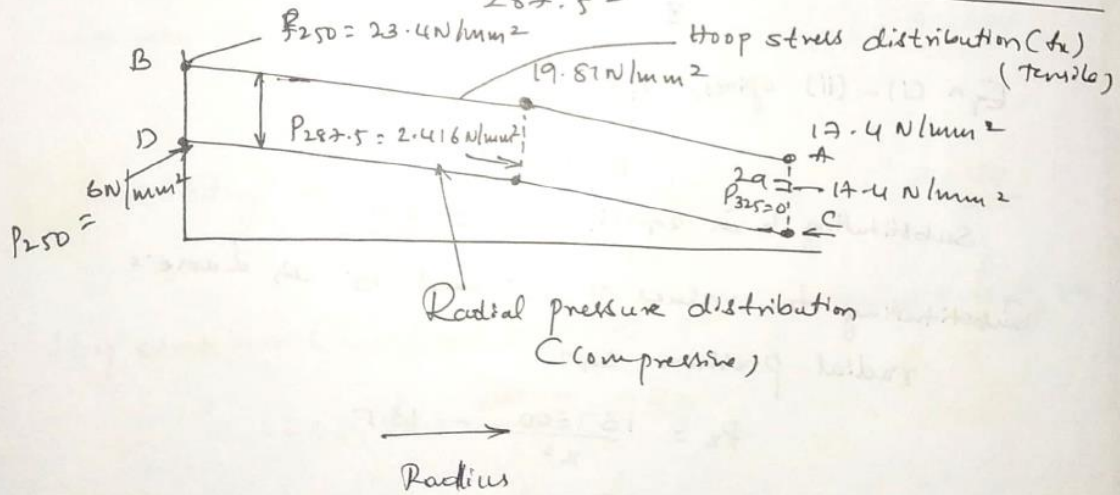 287.5
f250 = 23.4N/mm²
Hoop stress distribution (fx)
(Tensile)
B
19.81N/mm²
D
P287.5 = 2.416 N/mm²
17.4 N/mm²
A
2a = 17.4 N/mm²
P325=0
C
6N/mm²
P250 =
Radial pressure distribution
(compressive)
Radius